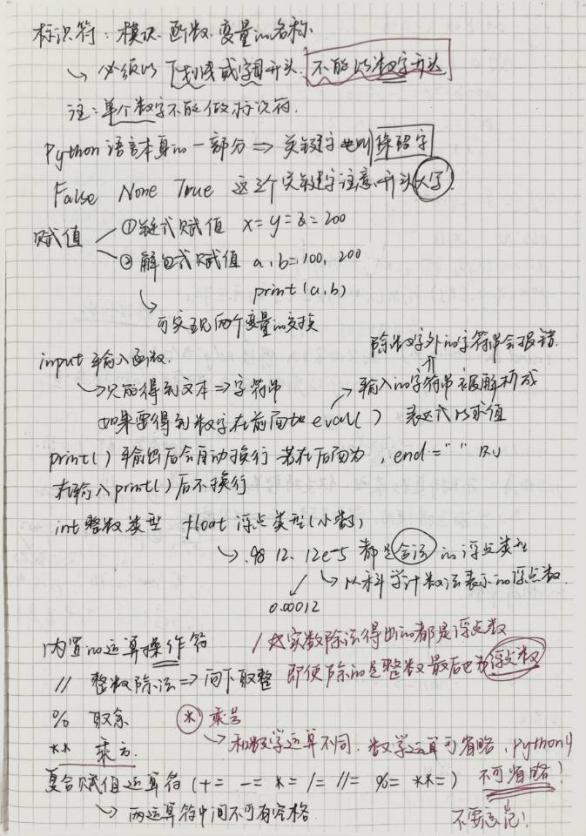 标识符：模块、函数、变量的名称
↳ 必须以下划线或字母开头 不能以数字开头
注：单个数字不能做标识符.
Python 语言本身的一部分 ⇒ 关键字 也叫 保留字
False None True 这三个关键字注意开头大写!
赋值 ①链式赋值 x=y=z=200
② 解包式赋值 a,b=100,200
print(a,b)
↳ 可实现两个变量的交换
input 输入函数. 除数字外的字符串会报错
↳ 只能得到文本 ⇒ 字符串 输入的字符串被解析成
如果要得到数字在前面加 eval( ) 表达式的求值
print( ) 输出后会自动换行 若在后面为 , end = " "
在输入print( )后不换行
int 整数类型 float 浮点类型(小数)
↳ .98 12. 12e-5 都是合法的浮点类型
↳ 以科学计数法表示的浮点数
0.00012
内置的运算操作符 / 实数除法得出的都是浮点数
// 整数除法 ⇒ 向下取整 即使除的是整数最后也有浮点数
% 取余 * 乘号
** 乘方. ↳ 和数学运算不同. 数学运算可省略, Python
复合赋值运算符 (+= -= *= /= //= %= **=) 不可省略!
↳ 两运算符中间不可有空格. 不要忘记!